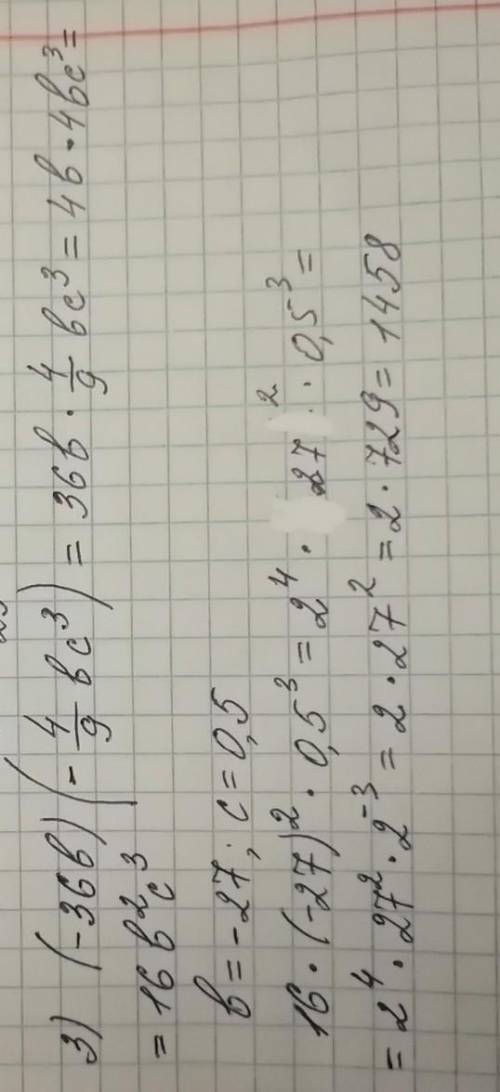 3) (-36b)(-4/9 bc³) = 36b · 4/9 bc³ = 4b · 4bc³ =
= 16b²c³
b = -27; c = 0,5
16 · (-27)² · 0,5³ = 2⁴ · 27² · 0,5³ =
= 2⁴ · 27² · 2⁻³ = 2 · 27² = 2 · 729 = 1458